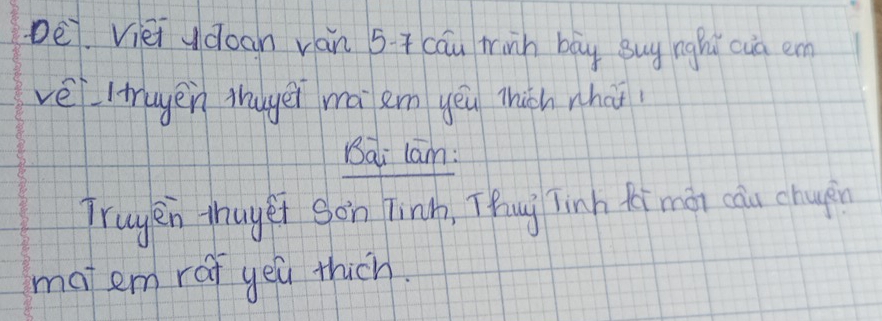 Đề. Viết 1 đoạn văn 5-7 câu trình bày suy nghĩ của em
về 1 truyền thuyết mà em yêu thích nhất.
Bài làm:
Truyền thuyết Sơn Tinh, Thuỷ Tinh là một câu chuyện
mà em rất yêu thích.